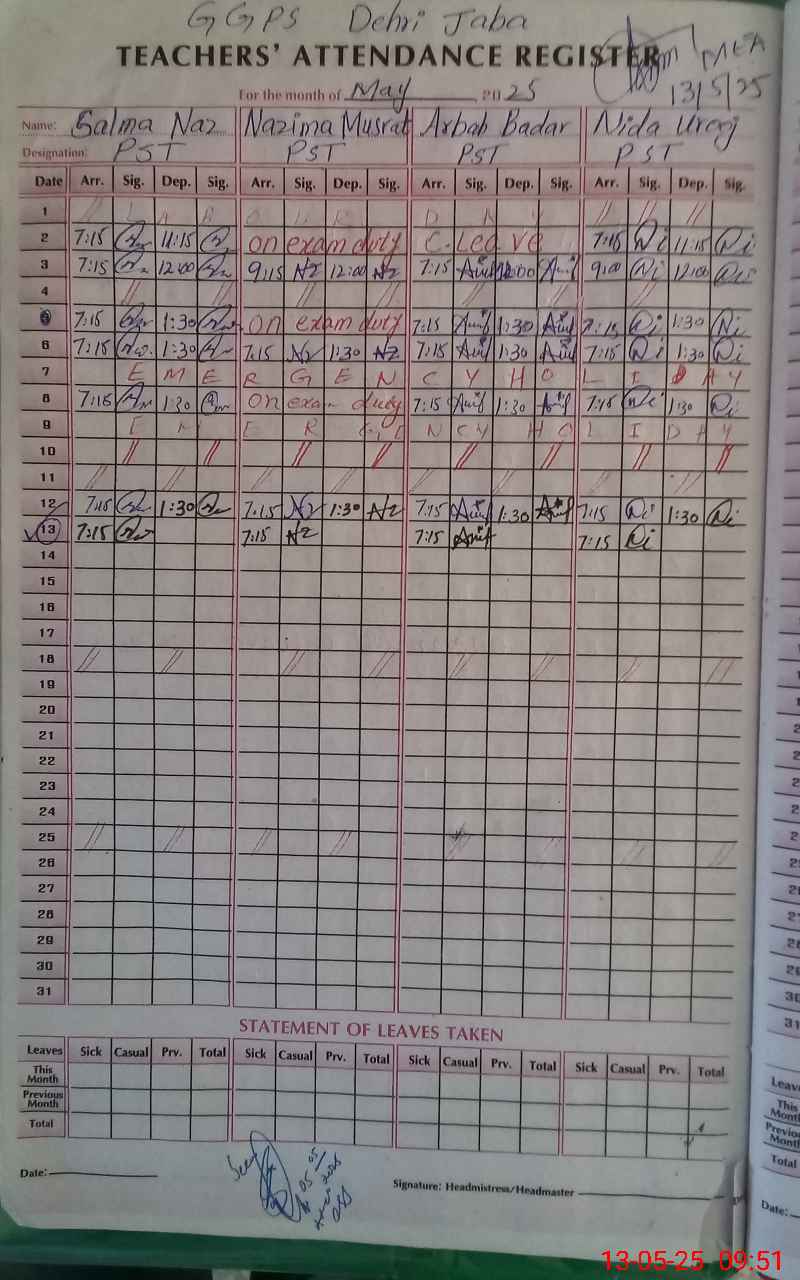 GGPS Dehri Jaba
TEACHERS' ATTENDANCE REGISTER
MEA
13/5/25
For the month of May 2025
Name: Salma Naz Nazima Musrat Arbab Badar Nida
Designation: PST PST PST PST
Date Arr. Sig. Dep. Sig. Arr. Sig. Dep. Sig. Arr. Sig. Dep. Sig. Arr. Sig. Dep. Sig.
1 L A B O U R D A Y
2 7:15 11:15 on exam duty C. Leave 7:15 Ni 11:15 Ni
3 7:15 12:00 9:15 NZ 12:00 NZ 7:15 12:00 9:00 Ni 12:00 Ni
4
5 7:15 1:30 on exam duty 7:15 1:30 7:15 Ni 1:30 Ni
6 7:15 1:30 7:15 NZ 1:30 NZ 7:15 1:30 7:15 Ni 1:30 Ni
7 E M E R G E N C Y H O L I D A Y
8 7:15 1:30 on exam duty 7:15 1:30 7:15 Ni 1:30 Ni
9 E M E R G E N C Y H O L I D A Y
10
11
12 7:15 1:30 7:15 NZ 1:30 NZ 7:15 1:30 7:15 Ni 1:30 Ni
13 7:15 7:15 NZ 7:15 7:15 Ni
14
15
16
17
18
19
20
21
22
23
24
25
26
27
28
29
30
31
STATEMENT OF LEAVES TAKEN
Leaves Sick Casual Prv. Total Sick Casual Prv. Total Sick Casual Prv. Total Sick Casual Prv. Total
This Month
Previous Month
Total
Date:
Seen
05 05 2025
Signature: Headmistress/Headmaster
31
Leaves
This
Month
Previous
Month
Total
Date:
13-05-25 09:51